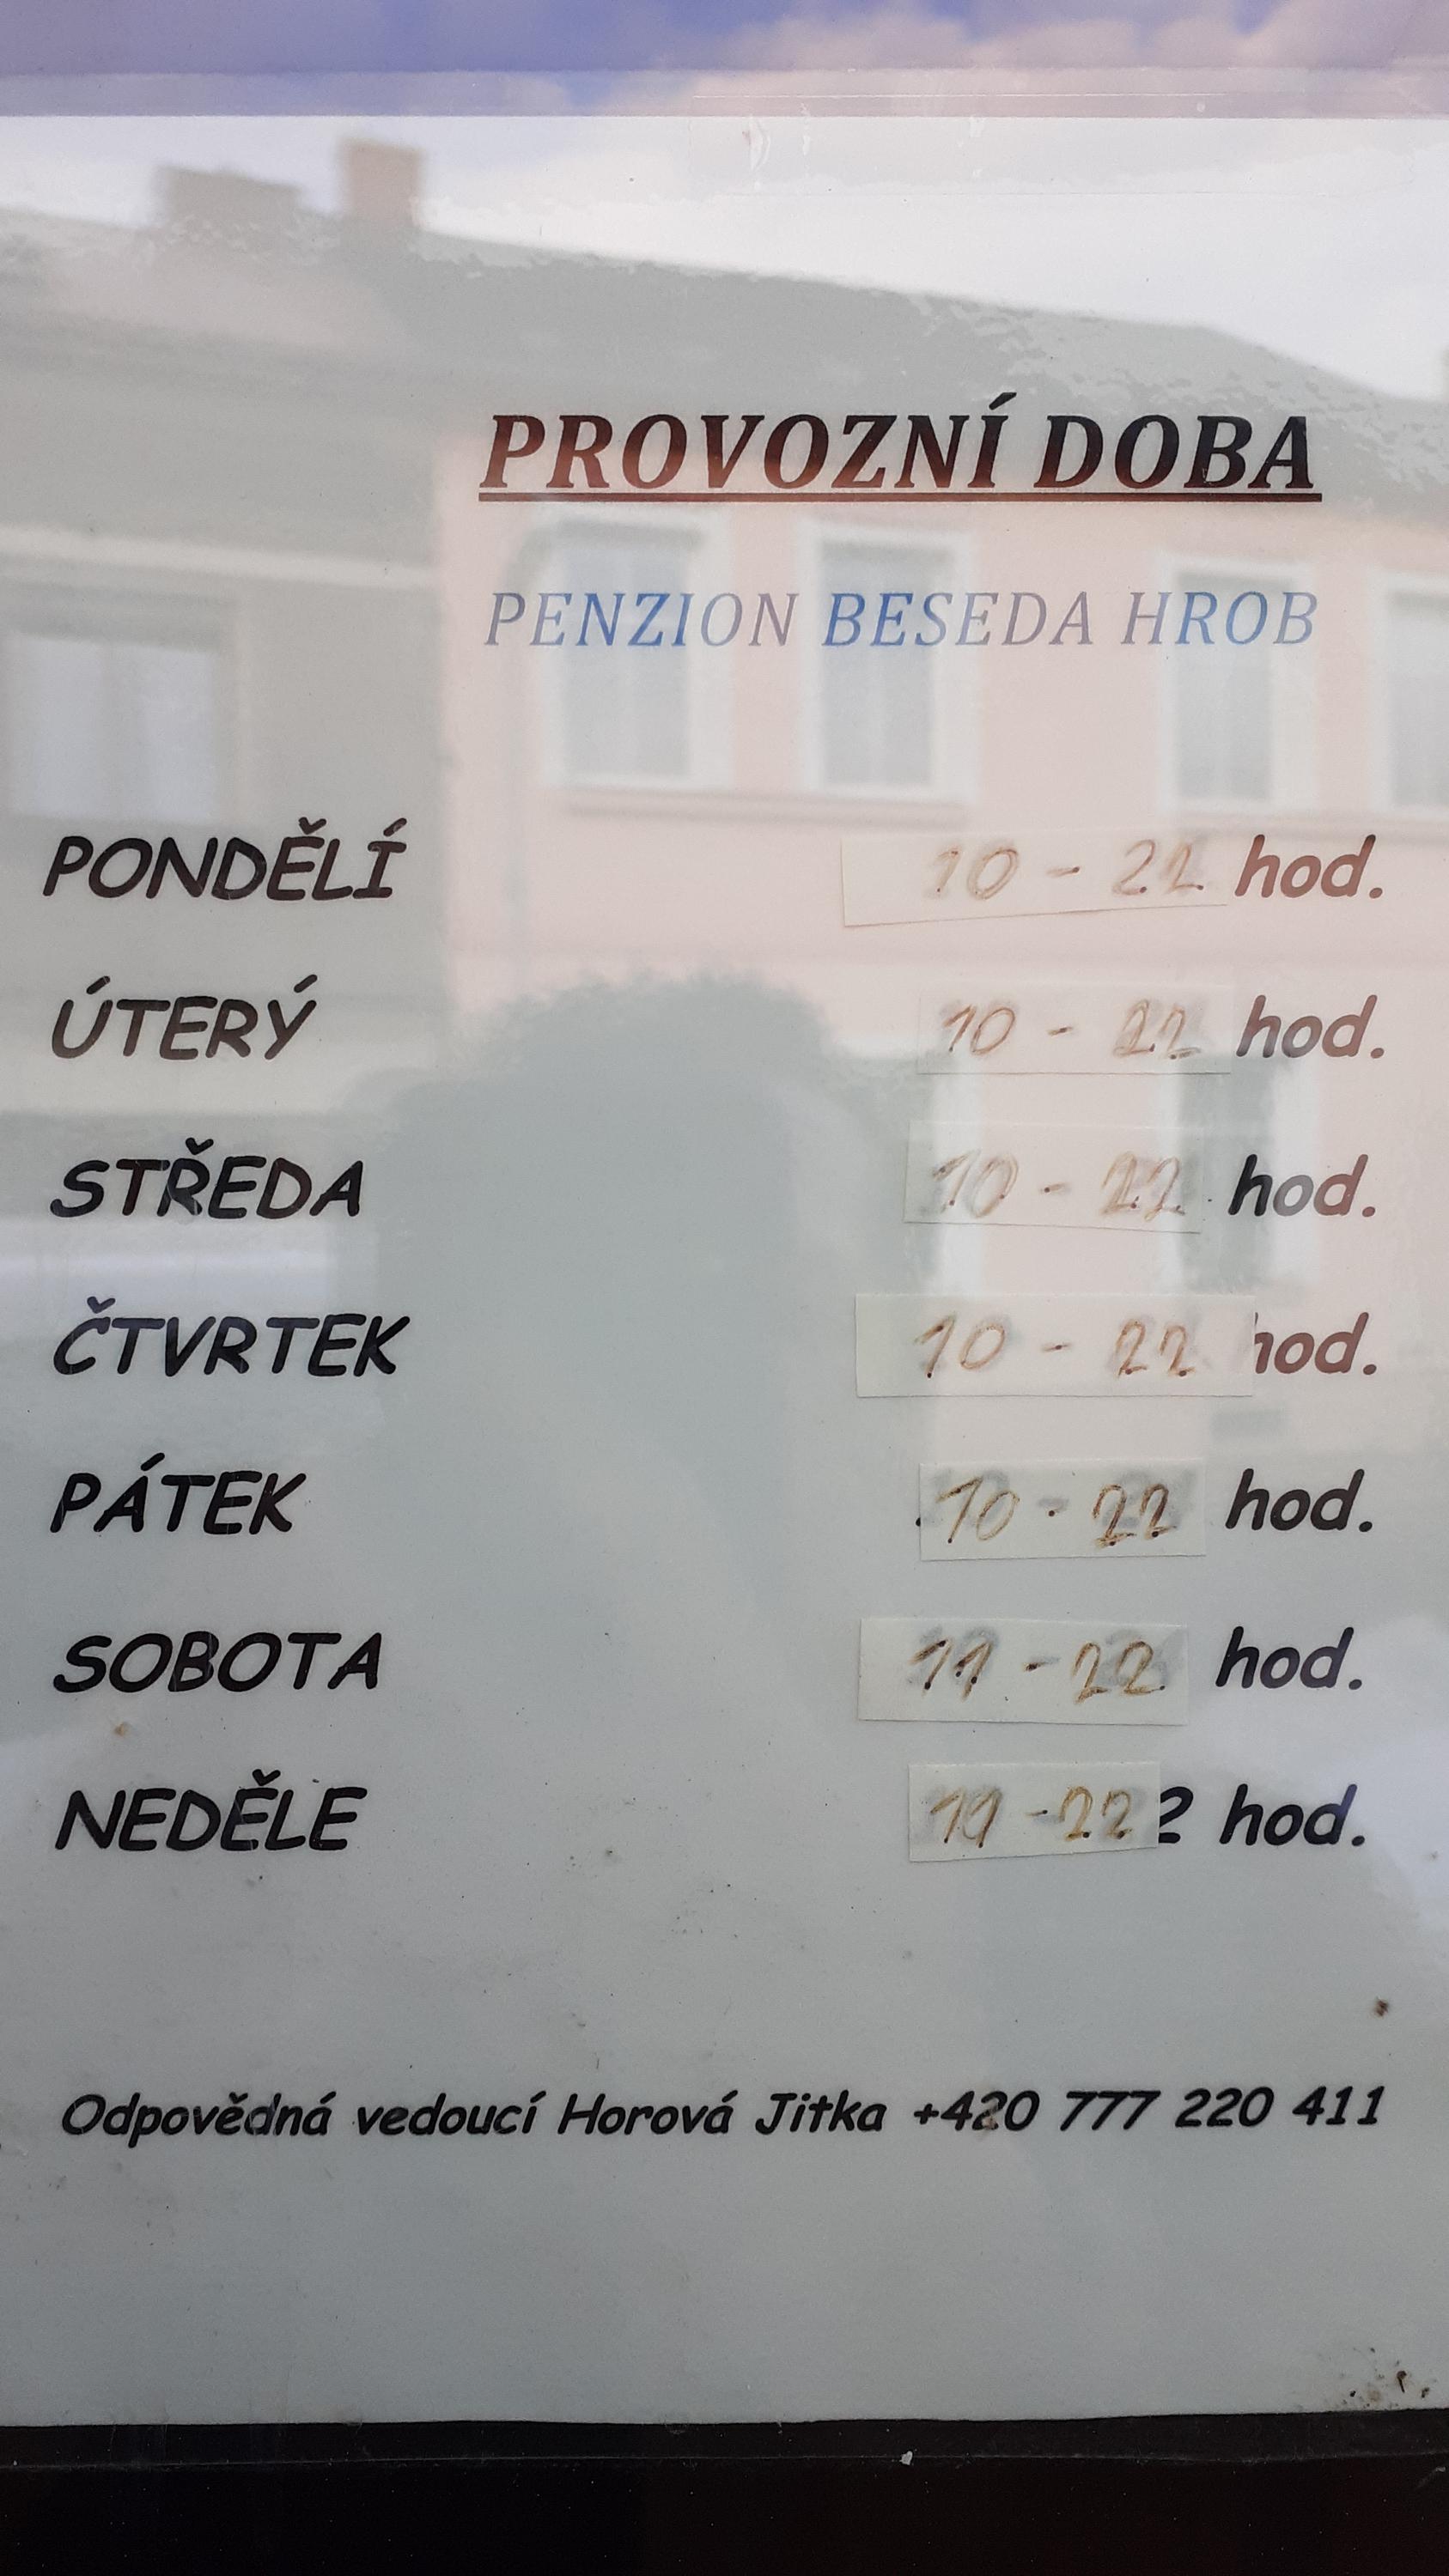 PROVOZNÍ DOBA
PENZION BESEDA HROB
PONDĚLÍ 10 - 22 hod.
ÚTERÝ 10 - 22 hod.
STŘEDA 10 - 22 hod.
ČTVRTEK 10 - 22 hod.
PÁTEK 10 - 22 hod.
SOBOTA 11 - 22 hod.
NEDĚLE 11 - 22 hod.
Odpovědná vedoucí Horová Jitka +420 777 220 411